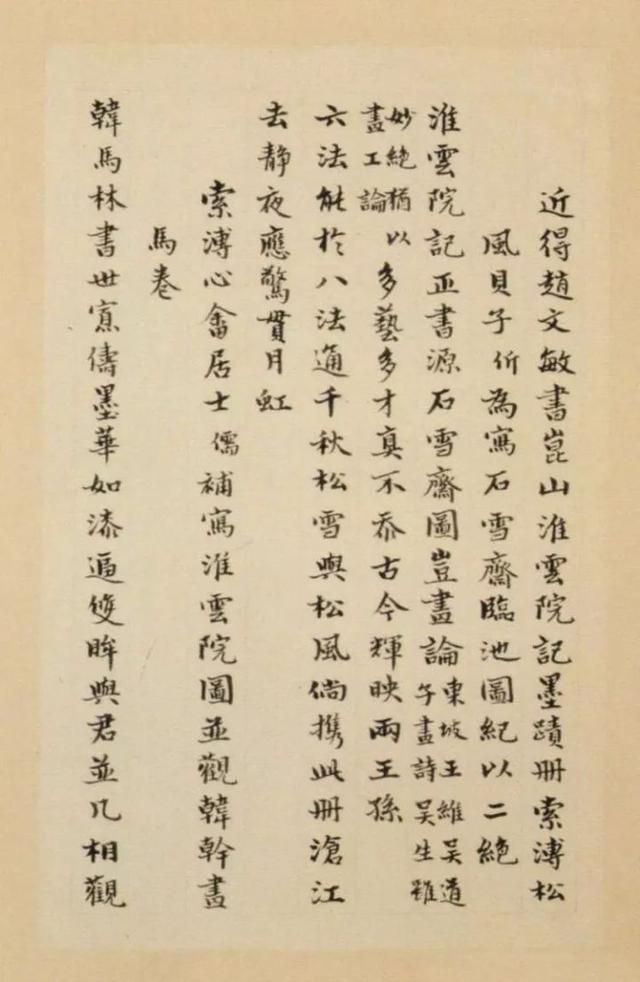 近得趙文敏書崑山淮雲院記墨蹟冊索溥松
風貝子伒為寫石雪齋臨池圖紀以二絕
淮雲院記正書源石雪齋圖豈畫論東坡王維吳道
子畫詩吳生雖
妙絕猶以
畫工論多藝多才真不忝古今輝映兩王孫
六法能於八法通千秋松雪與松風倘携此冊滄江
去靜夜應驚貫月虹
索溥心畬居士儒補寫淮雲院圖並觀韓幹畫
馬卷
韓馬林書世寡儔墨華如漆逼雙眸與君並几相觀